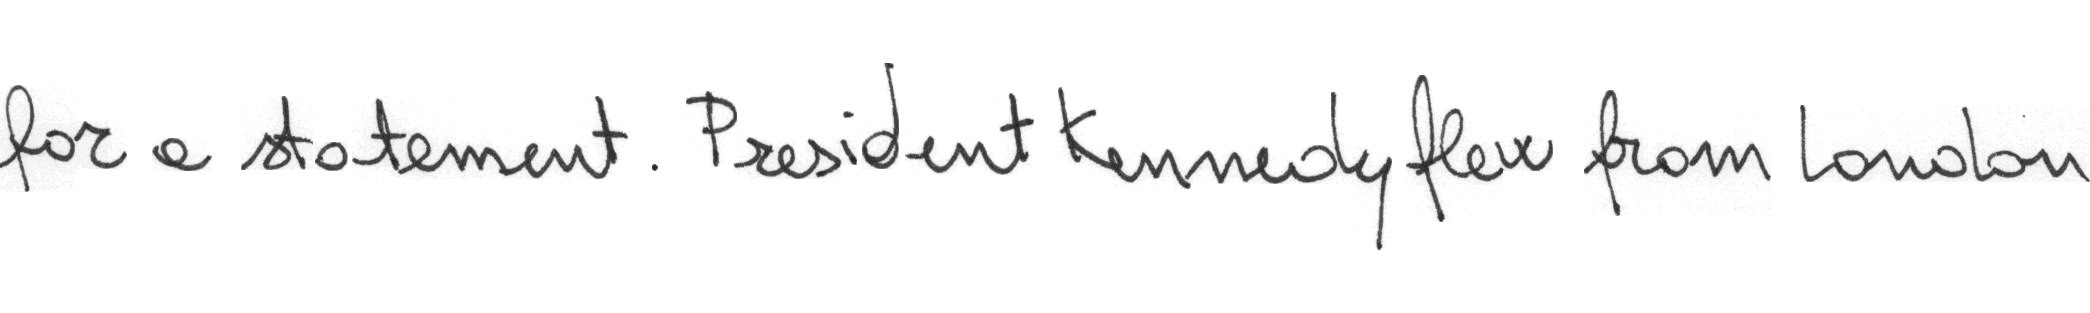 for a statement. President Kennedy flew from London